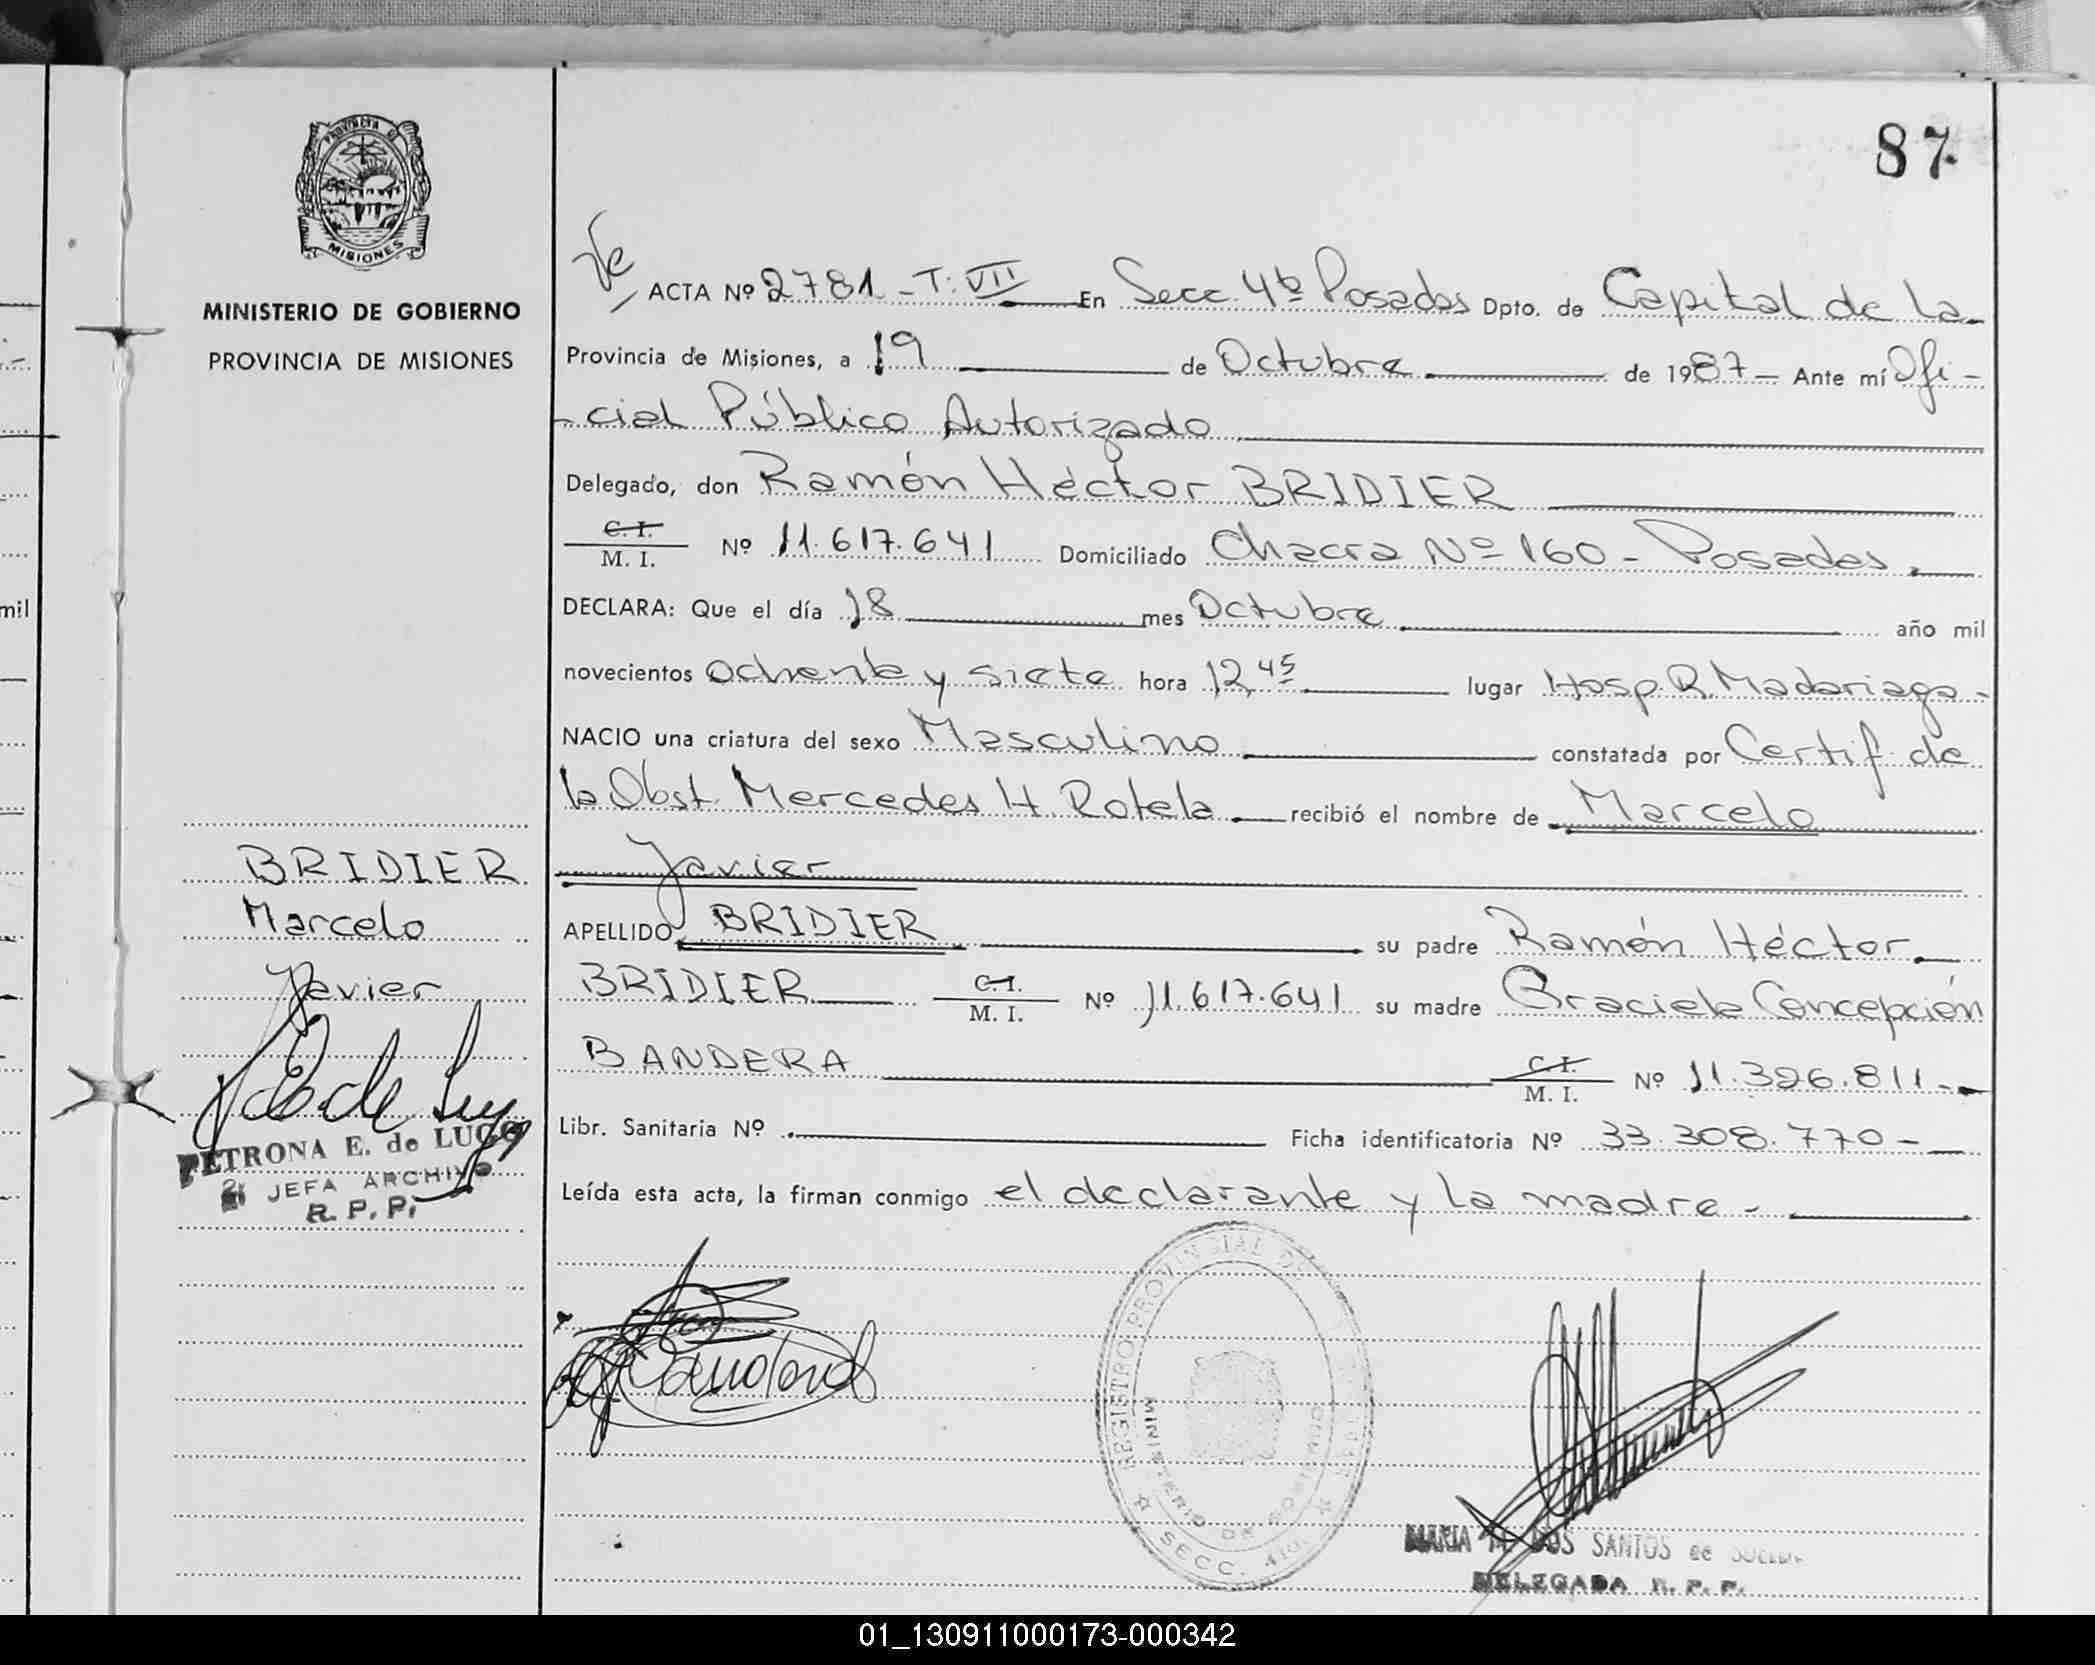 PROVINCIA DE
MISIONES
MINISTERIO DE GOBIERNO
PROVINCIA DE MISIONES
BRIDIER
Marcelo
Javier
PETRONA E. de LUGO
JEFA ARCHIVO
R. P. P.
87
ACTA Nº 2781 - T. VII En Secc. 4ª Posadas Dpto. de Capital de la
Provincia de Misiones, a 19 de Octubre de 1987 - Ante mí Ofi-
-cial Público Autorizado
Delegado, don Ramón Héctor BRIDIER
C. I.
M. I. Nº 11.617.641 Domiciliado Chacra Nº 160 - Posadas.
DECLARA: Que el día 18 mes Octubre año mil
novecientos ochenta y siete hora 12,45 lugar Hosp. R. Madariaga -
NACIO una criatura del sexo Masculino constatada por Certif de
la Obst. Mercedes H. Rotela recibió el nombre de Marcelo
Javier
APELLIDO BRIDIER su padre Ramón Héctor
BRIDIER C. I. M. I. Nº 11.617.641 su madre Graciela Concepción
BANDERA C. I. M. I. Nº 11.326.811 -
Libr. Sanitaria Nº Ficha identificatoria Nº 33.308.770 -
Leída esta acta, la firman conmigo el declarante y la madre -
REGISTRO PROVINCIAL DE
MINISTERIO DE GOBIERNO
SECC. 4
MARIA DOS SANTOS de
DELEGADA R. P. P.
mil
01_130911000173-000342